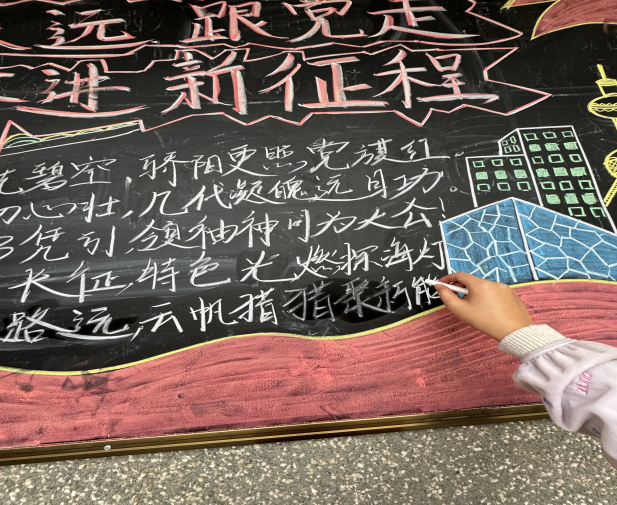 远 跟党走
进 新征程
碧空，骄阳更照党旗红。
心壮，几代凝魂远日功。
凭引领袖神 为大公！
长征，特色光燃探海灯
路远，云帆猎猎聚新能